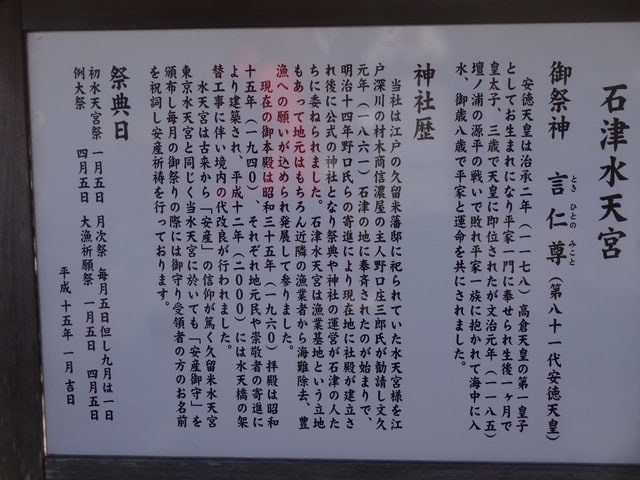 石津水天宮
御祭神 言仁尊(第八十一代安徳天皇)
ときひとのみこと
安徳天皇は治承二年(一一七八)高倉天皇の第一皇子
としてお生まれになり平家一門に奉せられ生後一ヶ月で
皇太子、三歳で天皇に即位されたが文治元年(一一八五)
壇ノ浦の源平の戦いで敗れ平家一族に抱かれて海中に入
水、御歳八歳で平家と運命を共にされました。
神社歴
当社は江戸の久留米藩邸に祀られていた水天宮様を江
戸深川の材木商信濃屋の主人野口庄三郎氏が勧請し文久
元年(一八六一)石津の地に奉斉されたのが始まりで、
明治十四年野口氏らの寄進により現在地に社殿が建立さ
れ後に公式の神社となり祭典や神社の運営が石津の人た
ちに委ねられました。石津水天宮は漁業基地という立地
もあって地元はもちろん近隣の漁業者から海難除去、豊
漁への願いが込められ発展して参りました。
現在の御本殿は昭和三十五年(一九六〇)拝殿は昭和
十五年(一九四〇)、それぞれ地元民や崇敬者の寄進に
より建築され、平成十二年(二〇〇〇)には水天橋の架
替工事に伴い境内の代改良が行われました。
水天宮は古来から「安産」の信仰が篤く久留米水天宮
東京水天宮と同じく当水天宮に於いても「安産御守」を
頒布し毎月の御祭りの際には御守り受領者の方のお名前
を祝詞し安産祈祷を行っております。
祭典日
初水天宮祭 一月五日 月次祭 毎月五日但し九月は一日
例大祭 四月五日 大漁祈願祭 一月五日 四月五日
平成十五年一月吉日